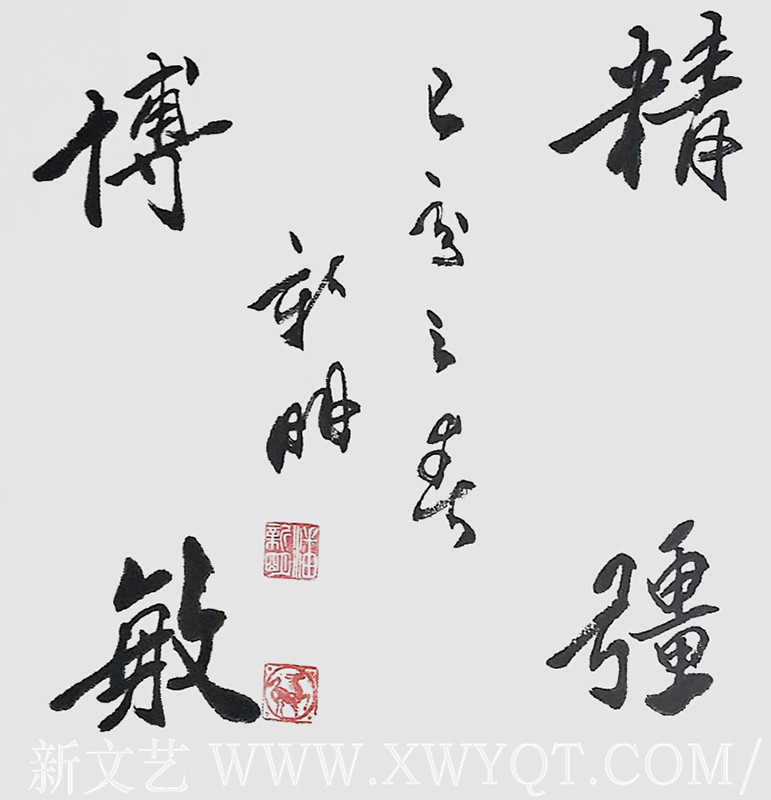 精彊
己亥之春
新明
博敏
新文艺 WWW.XWYQT.COM/